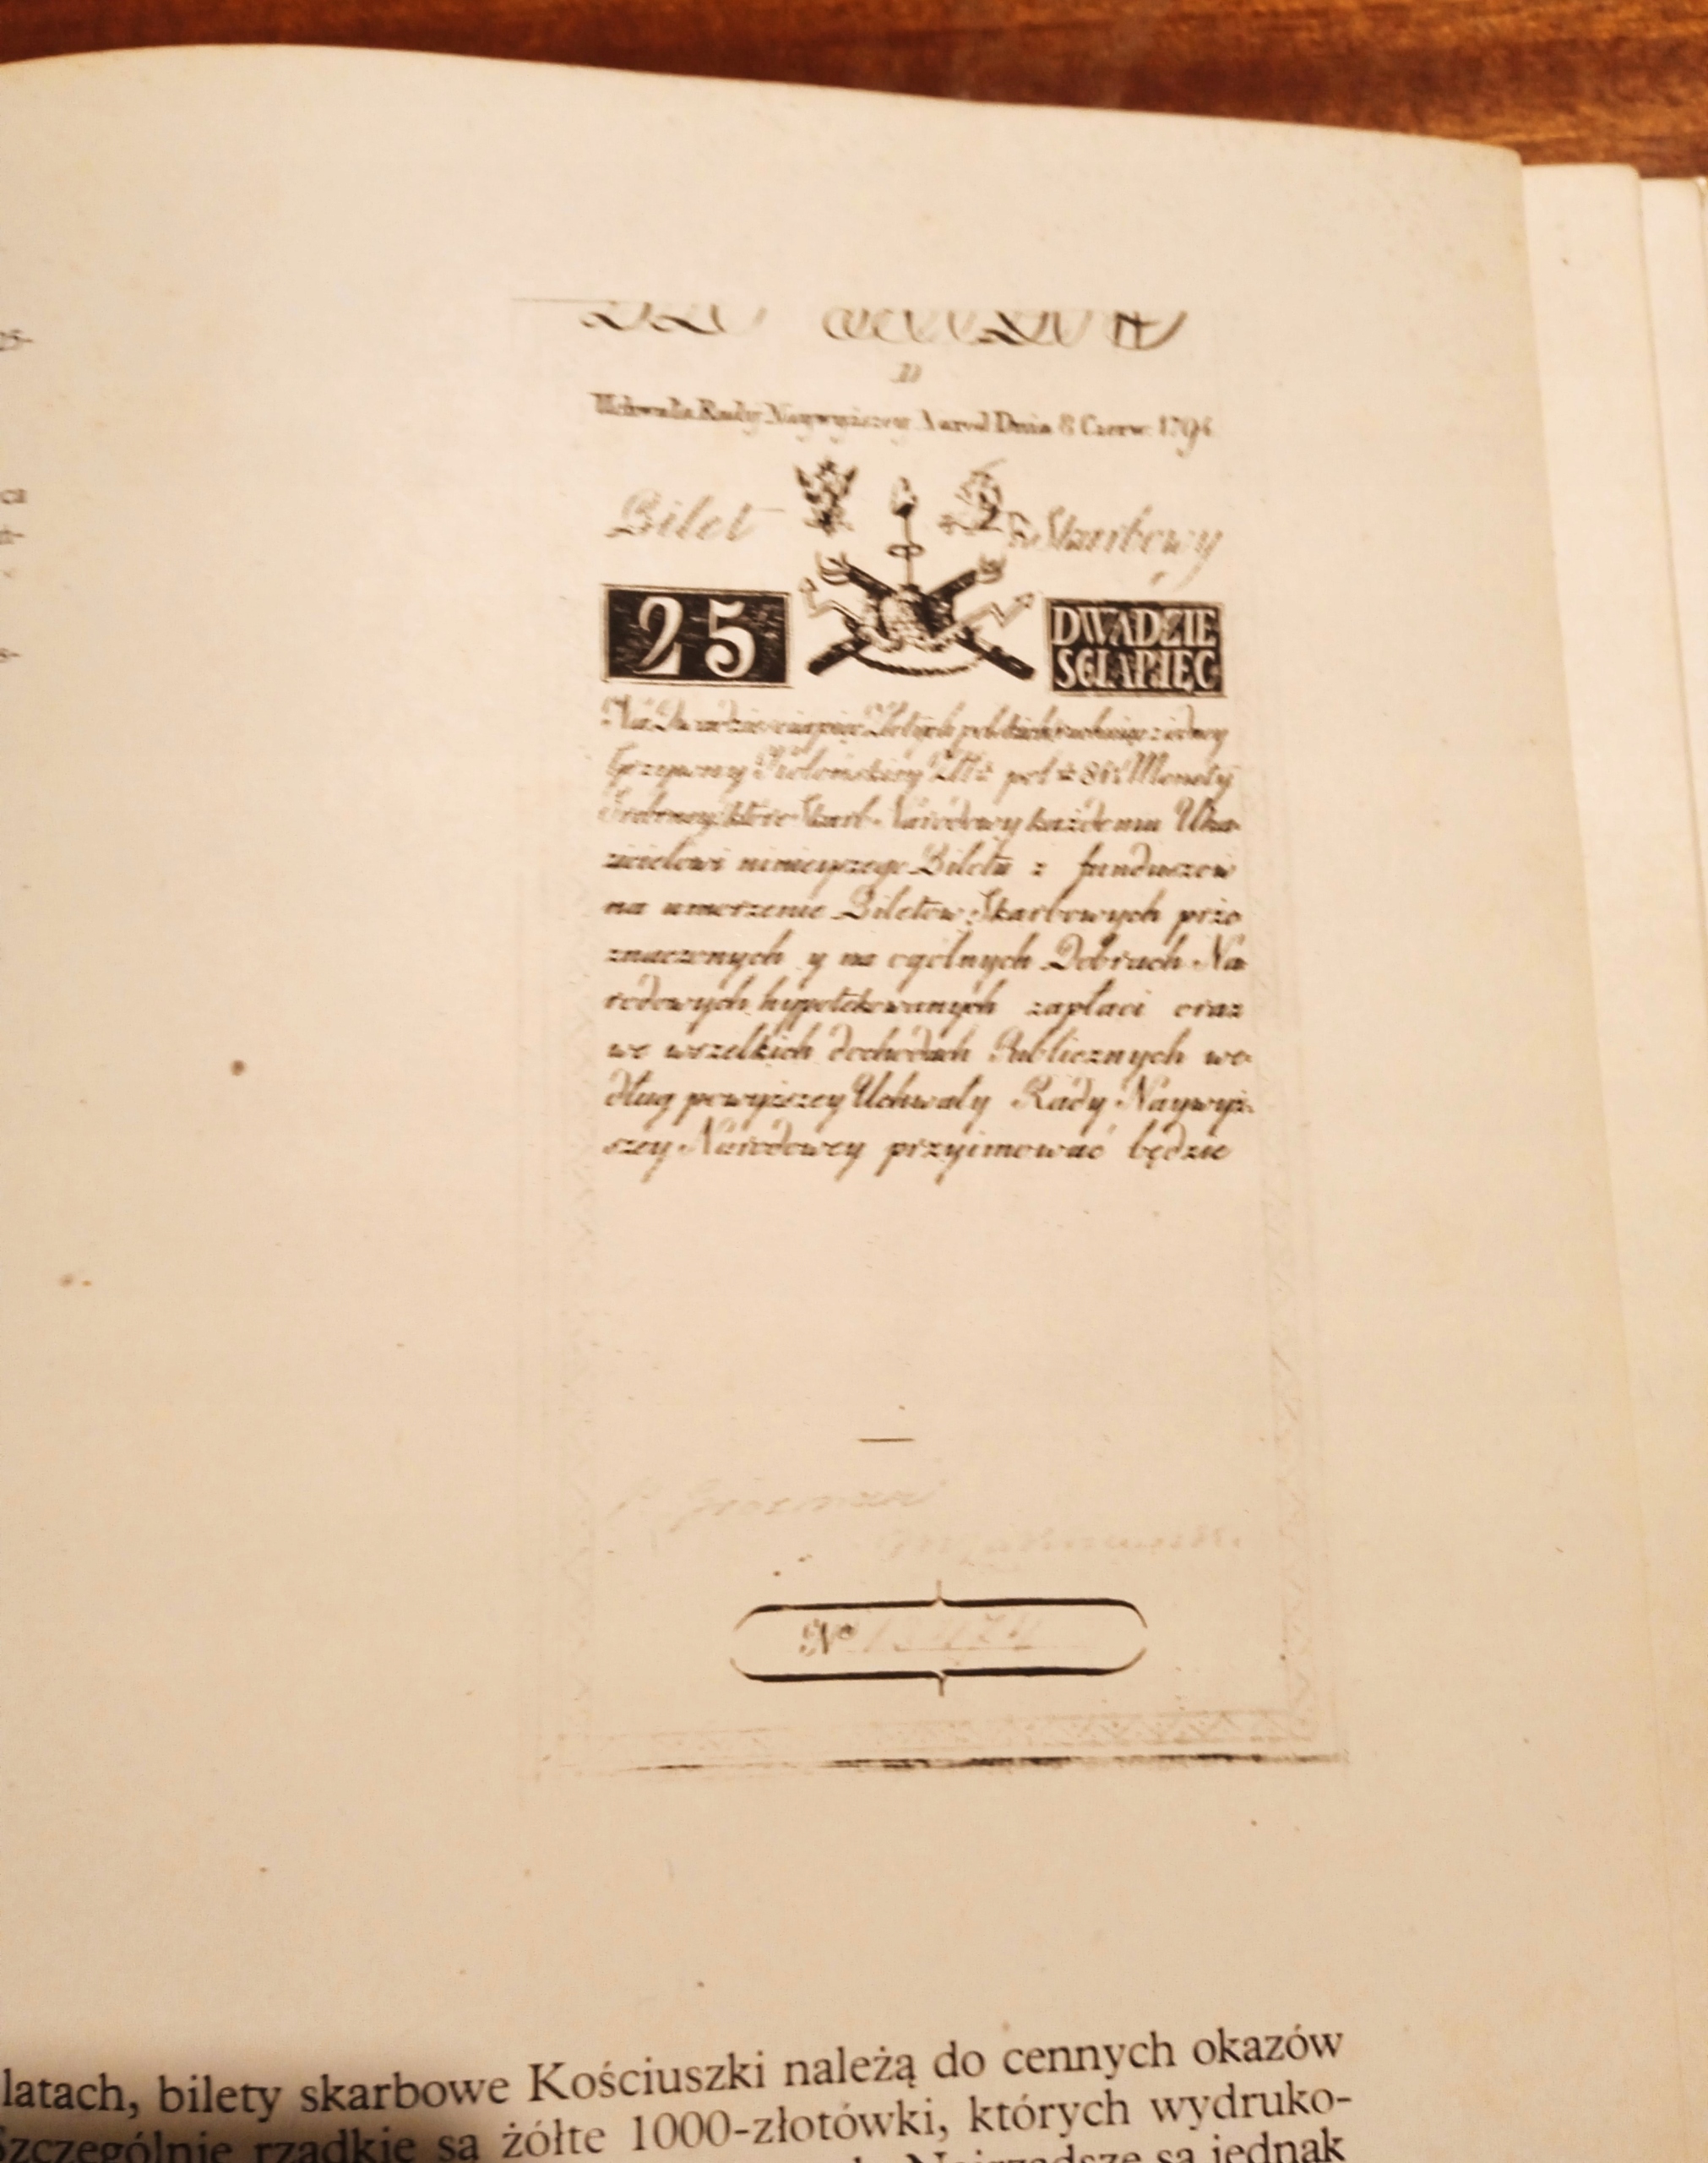 D
Uchwała Rady Naywyższey Narod Dnia 8 Czerw: 1794
Bilet Skarbowy
25 DWADZIE
SCIA PIĘC
Na Dwadzieściapięć Złotych polskich rachuiąc z iedney
Grzywny Kolońskiey Złł: pol: 84½ Monety
Srebrney, które Skarb Narodowy każdemu Oka-
zicielowi ninieyszego Biletu z funduszow
na umorzenie Biletow Skarbowych prze
znaczonych y na ogolnych Dobrach Na
rodowych hypotekowanych zapłaci oraz
we wszelkich dochodach Publicznych we-
dług powyższey Uchwały Rady Naywyż-
szey Narodowey przyimować będzie
No
latach, bilety skarbowe Kościuszki należą do cennych okazów
Szczególnie rzadkie są żółte 1000-złotówki, których wydruko-
Najrzadsze są jednak